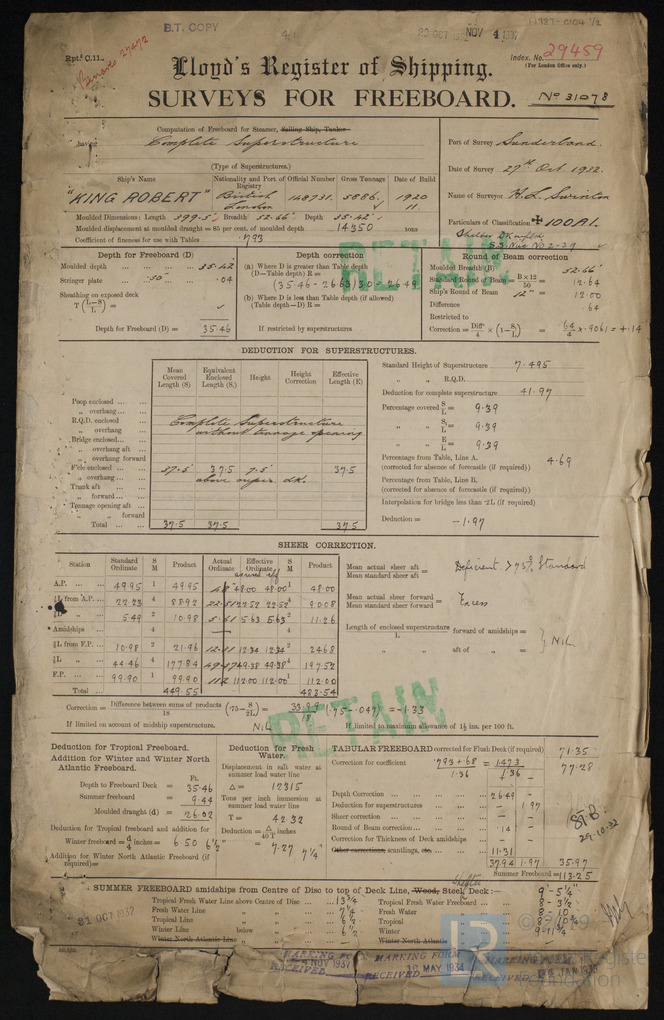 B.T. COPY
NOV 4 1932
Rpt. C.11.
Lloyd's Register of Shipping.
Index. No. 29459
(For London Office only.)
SURVEYS FOR FREEBOARD.
No 31078
Computation of Freeboard for Steamer, Sailing Ship, Tanker
having Complete Superstructure
(Type of Superstructures.)
Port of Survey Sunderland.
Date of Survey 27th Oct 1932.
Name of Surveyor H.L. Swinton
Particulars of Classification 100A1.
Ship's Name
Nationality and Port of Registry
Official Number
Gross Tonnage
Date of Build
"KING ROBERT" British London 148731. 5886. 1920 11
Moulded Dimensions: Length 399.5' Breadth 52.66' Depth 35.42'
Moulded displacement at moulded draught = 85 per cent. of moulded depth 14350 tons
Coefficient of fineness for use with Tables .793
RETAIN
Depth for Freeboard (D)
Moulded depth 35.42
Stringer plate .50" .04
Sheathing on exposed deck
T(L-S/L) =
Depth for Freeboard (D) = 35.46
Depth correction
(a) Where D is greater than Table depth
(D—Table depth) R =
(35.46-26.63)3.0 = 26.49
(b) Where D is less than Table depth (if allowed)
(Table depth—D) R =
If restricted by superstructures
Round of Beam correction
Moulded Breadth (B) 52.66'
Standard Round of Beam = B×12/50 = 12.64
Ship's Round of Beam 12" = 12.00
Difference 64
Restricted to
Correction = Diff/4 × (1-S/L) = 64/4 × .9061 = +.14
DEDUCTION FOR SUPERSTRUCTURES.
Mean Covered Length (S)
Equivalent Enclosed Length (S₁)
Height
Height Correction
Effective Length (E)
Poop enclosed
" overhang
R.Q.D. enclosed
" overhang
Bridge enclosed
" overhang aft
" overhang forward
F'cle enclosed 37.5 37.5 7.5' 37.5
" overhang
Trunk aft
" forward
Tonnage opening aft
" " forward
Total 37.5 37.5 37.5
Complete Superstructure
without tonnage opening
above super. dk.
Standard Height of Superstructure 7.495
" " R.Q.D.
Deduction for complete superstructure 41.97
Percentage covered S/L = 9.39
" " S₁/L = 9.39
" " E/L = 9.39
Percentage from Table, Line A.
(corrected for absence of forecastle (if required)) 4.69
Percentage from Table, Line B.
(corrected for absence of forecastle (if required))
Interpolation for bridge less than .2L (if required)
Deduction = -1.97
SHEER CORRECTION.
Station
Standard Ordinate
S M
Product
Actual Ordinate
Effective Ordinate
S M
Product
A.P. 49.95 1 49.95 48 48.00 48.00 1 48.00
⅙L from A.P. 22.23 4 88.92 22.52 22.52 4 90.08
⅓L " 5.49 2 10.98 5.63 5.63 2 11.26
Amidships 4 4
⅓L from F.P. 10.98 2 21.96 12.34 12.34 2 24.68
⅙L " 44.46 4 177.84 49.38 49.38 4 197.52
F.P. 99.90 1 99.90 112 112.00 112.00 1 112.00
Total 449.55 483.54
Mean actual sheer aft
Mean standard sheer aft = Deficient > 75% Standard
Mean actual sheer forward
Mean standard sheer forward = Excess
Length of enclosed superstructure
L forward of amidships =
" " aft of " =
Nil
Correction = Difference between sums of products/18 (.75-S/2L) = 33.99/18 (.75-.047) = -1.33
If limited on account of midship superstructure. NIL
If limited to maximum allowance of 1½ ins. per 100 ft.
RETAIN
Deduction for Tropical Freeboard.
Addition for Winter and Winter North Atlantic Freeboard.
Ft.
Depth to Freeboard Deck = 35.46
Summer freeboard = 9.44
Moulded draught (d) = 26.02
Deduction for Tropical freeboard and addition for
Winter freeboard = d/4 inches = 6.50 6½"
Addition for Winter North Atlantic Freeboard (if required) =
Deduction for Fresh Water.
Displacement in salt water at summer load water line
Δ = 12315
Tons per inch immersion at summer load water line
T = 42.32
Deduction = Δ/40T inches
= 7.27 7¼"
TABULAR FREEBOARD corrected for Flush Deck (if required) 71.35
Correction for coefficient .793+.68/1.36 = 1.473/1.36 77.28
Depth Correction 26.49
Deduction for superstructures 1.97
Sheer correction
Round of Beam correction .14
Correction for Thickness of Deck amidships
Other corrections, scantlings, etc. 11.31
37.94 1.97 35.97
Summer Freeboard = 113.25
29.10.32
SUMMER FREEBOARD amidships from Centre of Disc to top of Deck Line, Wood, Steel Deck:— 9'-5¼"
Shelter
Tropical Fresh Water Line above Centre of Disc 13¾
Fresh Water Line " " 7¼
Tropical Line " " 6½
Winter Line below " 6½
Winter North Atlantic Line " "
Tropical Fresh Water Freeboard 8-3½
Fresh Water " 8-10
Tropical " 8-10¾
Winter " 9-11¾
Winter North Atlantic "
31 OCT 1932
MARKING FORM
RECEIVED 5 NOV 1937
MARKING FORM
RECEIVED 16 MAY 1934
MARKING FORM
RECEIVED JAN 1933
LR